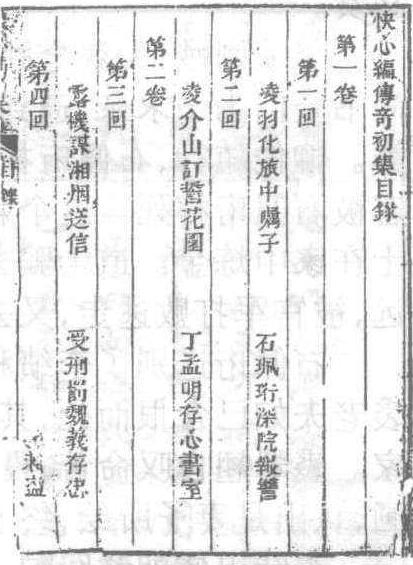 快心編傳奇初集目錄
第一卷
第一回
凌羽化旅中囑子 石珮珩深院報讐
第二回
凌介山訂誓花園 丁孟明存心書室
第二卷
第三回
露機謀湘烟送信 受刑罰魏義存忠
第四回
目錄